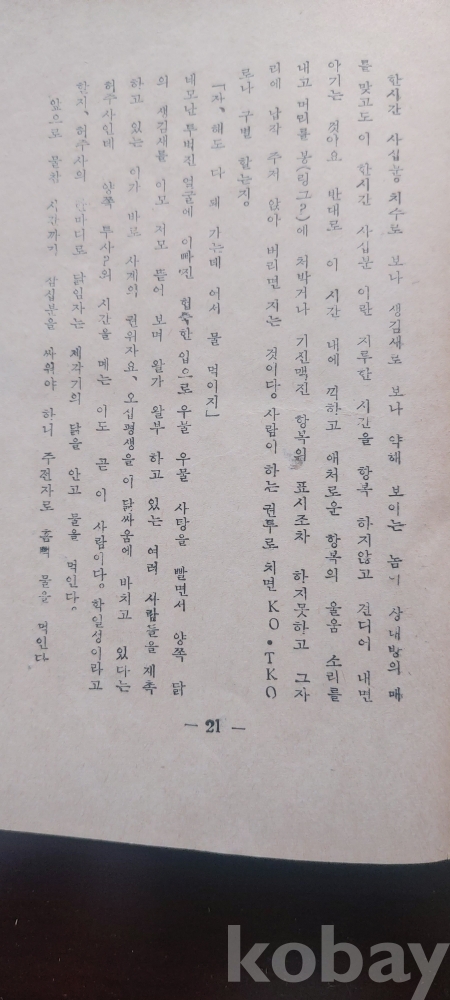 한시간 사십분 치수로 보나 생김새로 보나 약해 보이는 놈이 상대방의 매
를 맞고도 이 한시간 사십분 이란 지루한 시간을 항복 하지않고 견디어 내면
이기는 것이요 반대로 이 시간 내에 끽하고 애처로운 항복의 울음 소리를
내고 머리를 봉(링그?)에 처박거나 기진맥진 항복의 표시조차 하지못하고 그자
리에 납작 주저 앉아 버리면 지는 것이다. 사람이 하는 권투로 치면 KO•TKO
로나 구별 할는지
「자、해도 다 돼 가는데 어서 물 먹이지」
네모난 투박진 얼굴에 이빠진 협죽한 입으로 우물 우물 사탕을 빨면서 양쪽 닭
의 생김새를 이모 저모 뜯어 보며 왈가 왈부 하고 있는 여러 사람들을 재촉
하고 있는 이가 바로 사계의 권위자요、오십평생을 이 닭싸움에 바치고 있다는
허주사인데 양쪽 투사?의 시간을 메는 이도 곧 이 사람이다. 학일성이라고
한지、허주사의 한마디로 닭임자는 제각기의 닭을 안고 물을 먹인다。
앞으로 물참 시간까지 삼십분을 싸워야 하니 주전자로 흠뻑 물을 먹인다
— 21 —
kobay